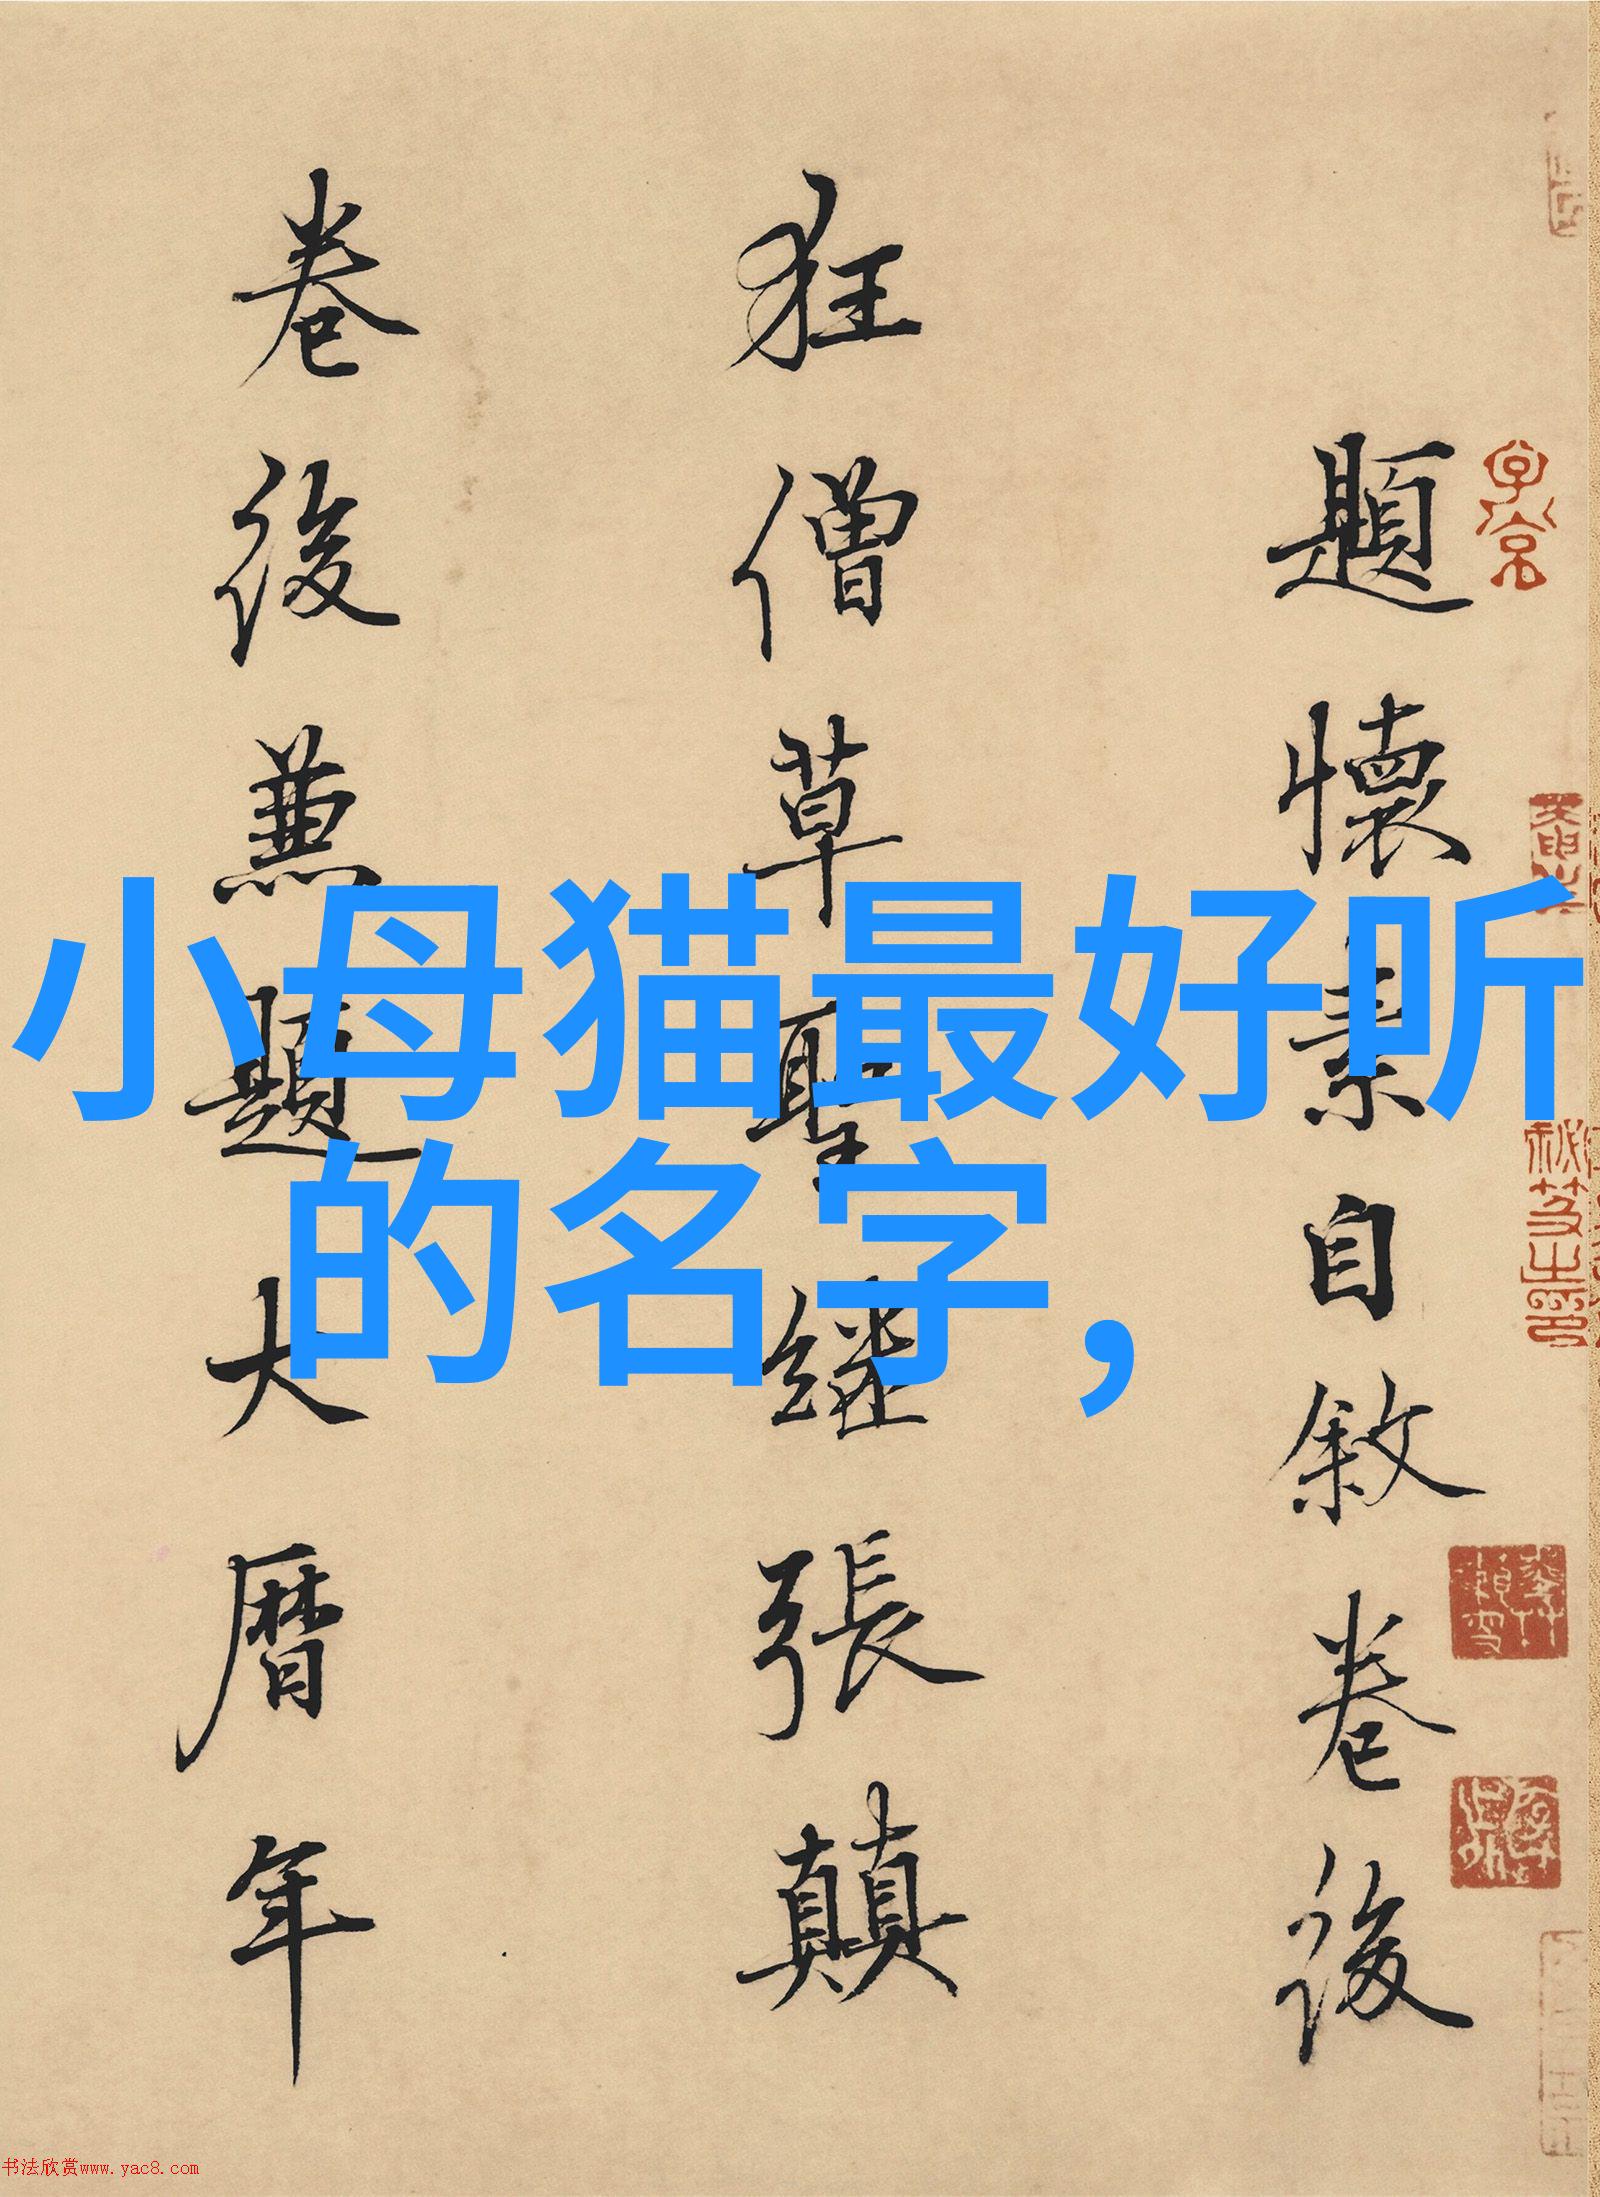 小母猫最好听
的名字，
題懷素自敘卷後
狂僧草聖繼張顛
卷後兼題大曆年
书法欣赏www.yac8.com